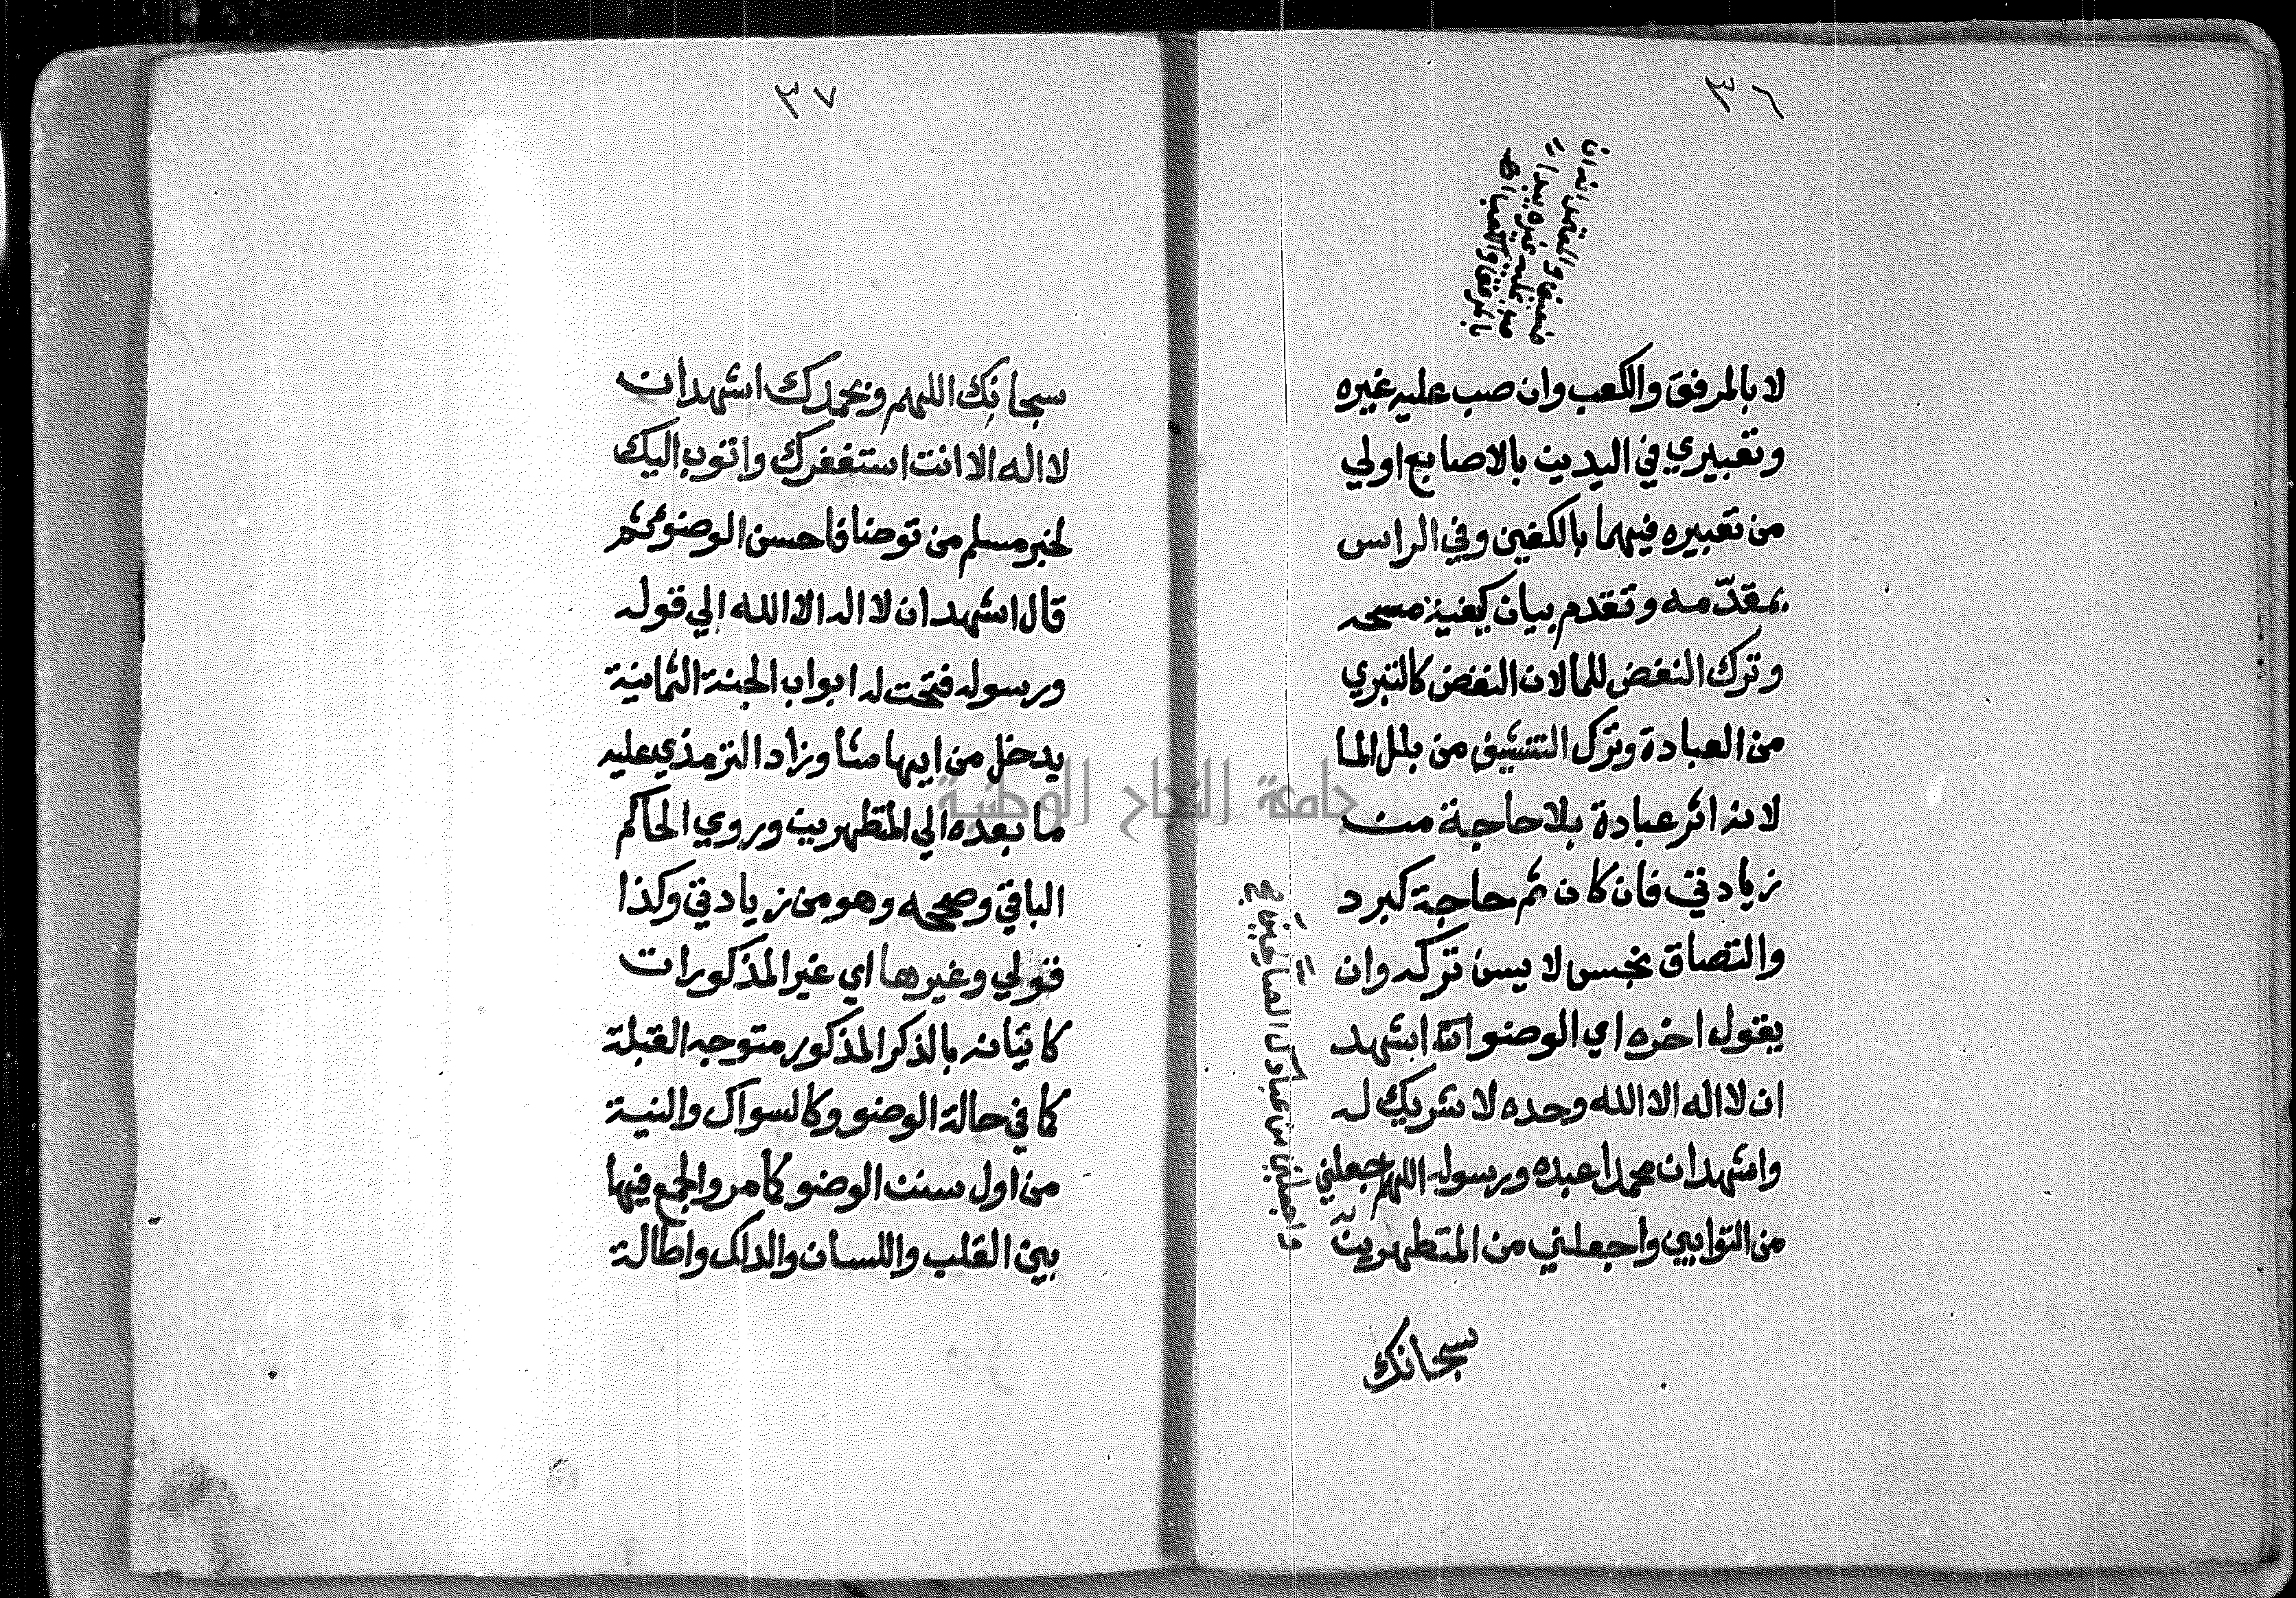 ٣٦
لا بالمرفق والكعب وان صب عليه غيره
وتعبيري في اليدين بالاصابع اولي
من تعبيره فيهما بالكفين وفي الراس
بمقدّمه وتقدم بيان كيفية مسحه
وترك النفض للما لان النفض كالتبري
من العبادة وترك التنشيف من بلل الما
لانه اثر عبادة بلا حاجة من
زيادتي فان كان ثم حاجة كبرد
والتصاق نجس لا يسن تركه وان
يقول اخره اي الوضو اشهد
ان لا اله الا الله وحده لا شريك له
واشهد ان محمدا عبده ورسوله اللهم اجعلني
من التوابين واجعلني من المتطهرين
واجعلني من عبادك الصالحين
سبحانك
٣٧
سبحانك اللهم وبحمدك اشهد ان
لا اله الا انت استغفرك واتوب اليك
لخبر مسلم من توضا فاحسن الوضو ثم
قال اشهد ان لا اله الا الله الي قوله
ورسوله فتحت له ابواب الجنة الثمانية
يدخل من ايها شا وزاد الترمذي عليه
ما بعده الي المتطهرين وروي الحاكم
الباقي وصححه وهو من زيادتي وكذا
قولي وغيرها اي غير المذكورات
كاتيانه بالذكر المذكور متوجه القبلة
كما في حالة الوضو وكالسواك والنية
من اول سنن الوضو كما مر والجمع فيها
بين القلب واللسان والدلك واطالة
جامعة النجاح الوطنية